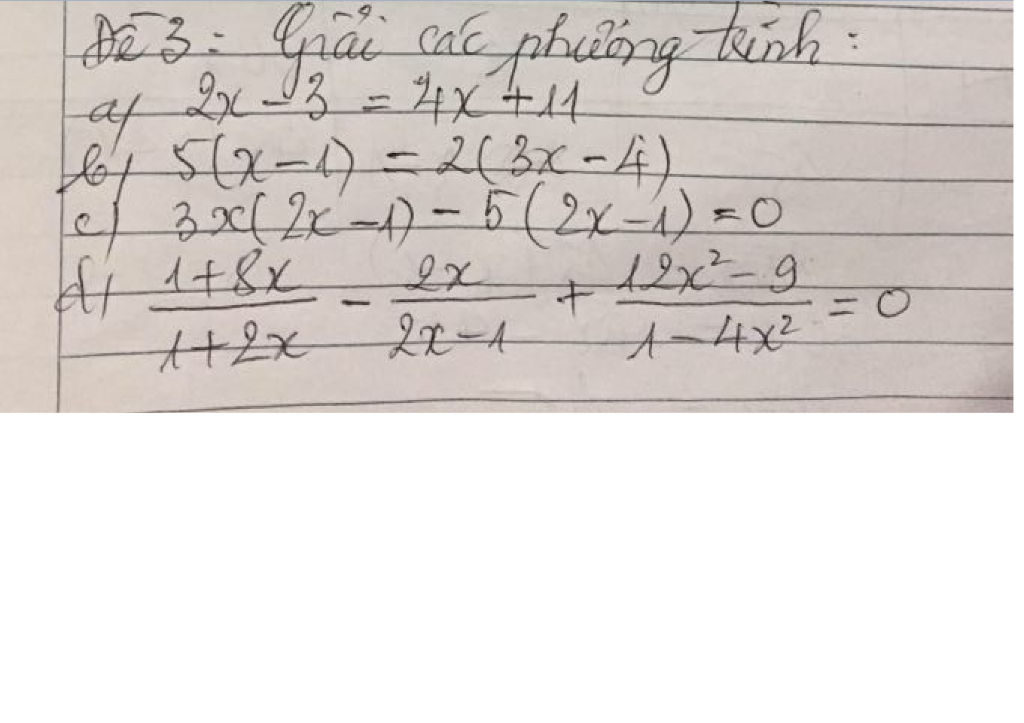 Đề 3: Giải các phương trình:
a) 2x - 3 = 4x + 11
b) 5(x - 1) = 2(3x - 4)
c) 3x(2x - 1) - 5(2x - 1) = 0
d) \frac{1+8x}{1+2x} - \frac{2x}{2x-1} + \frac{12x^2-9}{1-4x^2} = 0